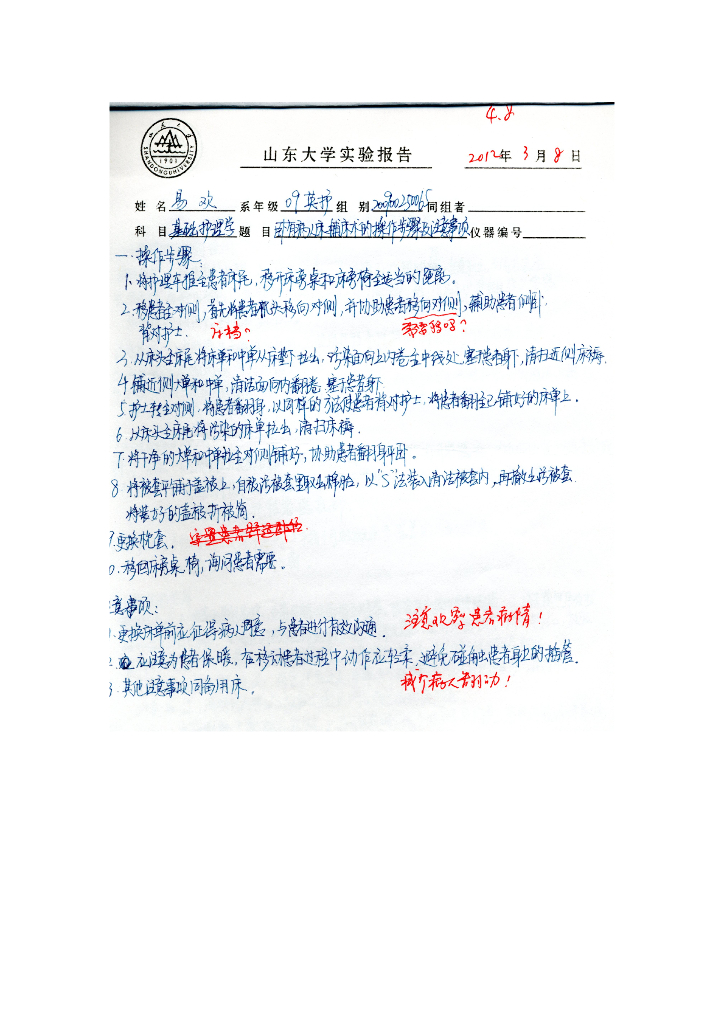 4.8
山东大学实验报告
2012年 3 月 8 日
姓 名 易欢 系年级 09英护 组 别 同组者
科 目 基础护理学 题 目 卧有病人床铺床术的操作步骤及注意事项 仪器编号
一、操作步骤:
1. 将护理车推至患者床尾,移开床旁桌和床旁椅至适当的距离。
2. 移患者至对侧,首先将患者枕头移向对侧,并协助患者移向对侧,辅助患者侧卧
背对护士. 床档? 需要移吗?
3. 从床头至床尾将床单和中单从床垫下拉出,污染面向上内卷至中线处,塞于患者身下,清扫近侧床褥.
4. 铺近侧大单和中单,清洁面向内翻卷,塞于患者身下
5. 护士转至对侧,将患者翻身,以同样的方法使患者背对护士,将患者翻至已铺好的床单上.
6. 从床头至床尾将污染的床单拉出,清扫床褥.
7. 将干净的大单和中单拉至对侧铺好,协助患者翻身平卧。
8. 将被套平铺于盖被上,自被污被套里取出棉胎,以"S"法装入清洁被套内,再撤出污被套.
将装好的盖被折被筒.
9. 更换枕套.
0. 移回床旁桌椅,询问患者需要。
意事项:
注意观察患者病情!
1. 更换床单前应征得病人同意,与患者进行有效沟通.
2. 应注意为患者保暖,在移动患者过程中动作应轻柔,避免碰触患者身上的插管.
3. 其他注意事项同备用床. 减少病人翻动!